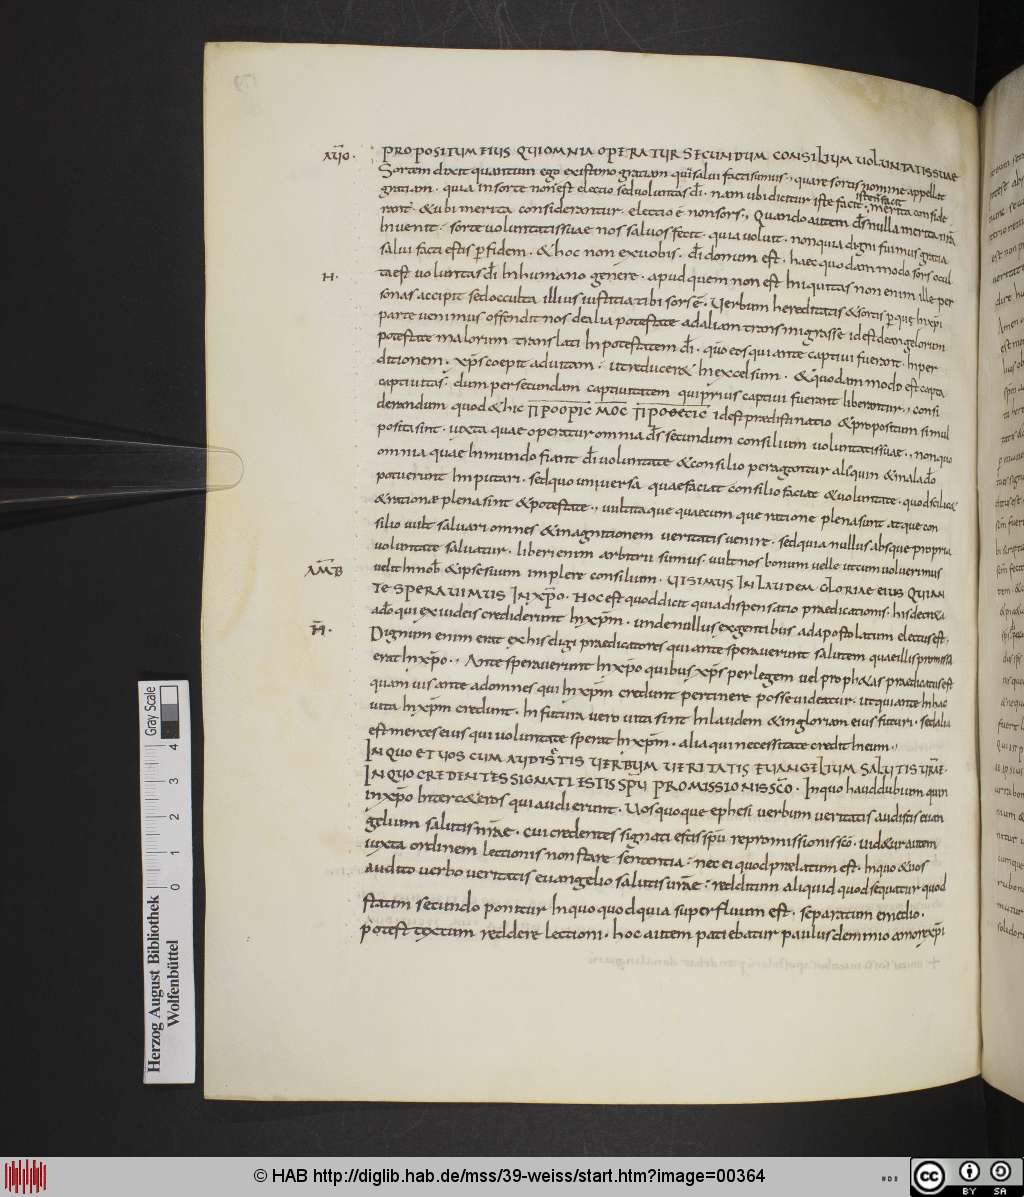 AUG.
PROPOSITUM EIUS QUI OMNIA OPERATUR SECUNDUM CONSILIUM VOLUNTATIS SUAE
Sortem dixit quantum ego existimo gratiam qui salui facti sumus., quare sortis nomine appellet
gratiam. quia in sorte non est electio sed voluntas di. nam ubi dicitur iste facit
iste n facit
merita conside
rant. & ubi merita considerantur. electio e non sors., Quando autem ds nulla merita nra
invenit. sorte voluntatis suae nos salvos fecit. quia voluit. non quia digni fuimus gratia
salvi facti estis p fidem. & hoc non ex vobis. di donum est. haec quodam modo sors ocul
H.
ta est voluntas di in humano genere. apud quem non est iniquitas non enim ille per
sonas accipit sed occulta illius iustitia tibi sors e. Verbum hereditatis & sortis p que in xpi
parte venimus offendit nos de alia potestate ad aliam transmigrasse id est de angelorum
potestate malorum translati in potestatem di. quo eos qui ante captivi fuerant. in per
ditionem. xps coepit ad vitam; ut reducer& in excelsum. & quodam modo est capta
captivitas. dum per secundam captivitatem qui prius captivi fuerant liberantur., consi
derandum quod & hic ΠΡΟΟΡΙCΜΟC ΠΡΟΘΕCIC id est praedistinatio & propositum simul
posita sint. iuxta quae operatur omnia ds secundum consilium voluntatis suae., non quo
omnia quae in mundo fiant di voluntate & consilio peragantur alioquin & mala do
potuerunt imputari. sed quo universa quae faciat consilio faciat & voluntate. quod scilic&
& ratione plena sint & potestate., vult itaque quaecum que ratione plena sunt atque con
silio vult salvari omnes & in agnitionem veritatis venire. sed quia nullus absque propria
voluntate salvatur. liberi enim arbitrii sumus. vult nos bonum velle ut cum voluerimus
AMB
velit in nob & ipse suum implere consilium. UT SIMUS IN LAUDEM GLORIAE EIUS QUI AN
TE SPERAVIMUS IN XPO. Hoc est quod dicit quia dispensatio praedicationis. his decreta
a do qui ex iudeis crediderunt in xpm. unde nullus ex gentibus ad apostolatum electus est.
H.
Dignum enim erat ex his eligi praedicatores qui ante speraverunt salutem quae illis promissa
erat in xpo., Ante speraverunt in xpo quibus xps per legem vel proph&as praedicatus est
quam vis ante ad omnes qui in xpm credunt pertinere posse videatur. ut qui ante in hac
vita in xpm credunt. in futura vero vita sint in laudem & in gloriam eius futuri. sed alia
est merces eius qui voluntate sperat in xpm. alia qui necessitate credit in eum.,
IN QUO ET VOS CUM AUDISSETIS VERBUM VERITATIS EVANGELIUM SALUTIS VRAE.
IN QUO CREDENTES SIGNATI ESTIS SPU PROMISSIONIS SCO. In quo haud dubium quin
in xpo inter& eos qui audierunt. Vos quoque ephesi verbum veritatis audistis evan
gelium salutis nrae. cui credentes signati estis spu repromissionis sco. vid&ur autem
iuxta ordinem lectionis non stare sententia; nec ei quod praelatum est. in quo & vos
audito verbo veritatis evangelio salutis vrae; redditum aliquid quod sequatur quod
statim secundo ponitur in quo quod quia superfluum est. separatum e medio.
potest textum reddere lectioni. hoc autem patiebatur paulus de nimio amore xpi
Herzog August Bibliothek
Wolfenbüttel
0 1 2 3 4
Gray Scale
© HAB http://diglib.hab.de/mss/39-weiss/start.htm?image=00364
cc BY SA